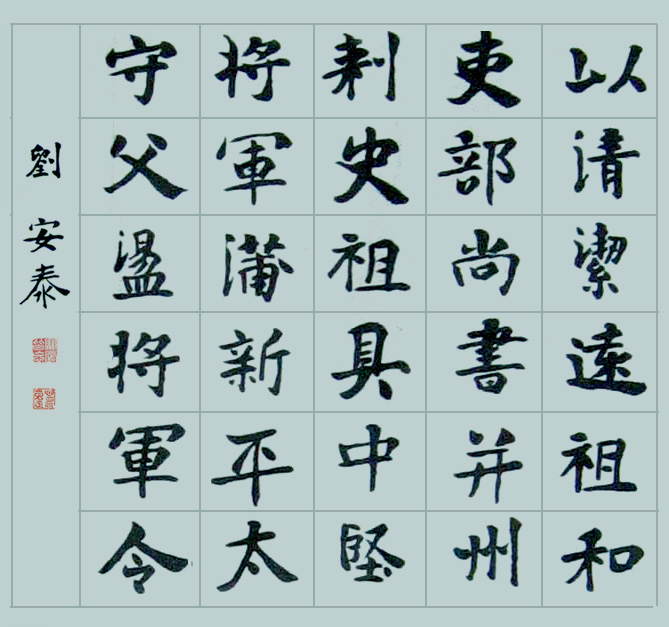 以清潔遠祖和
吏部尚書并州
刺史祖具中堅
将軍蒲新平太
守父盪将軍令
劉安泰